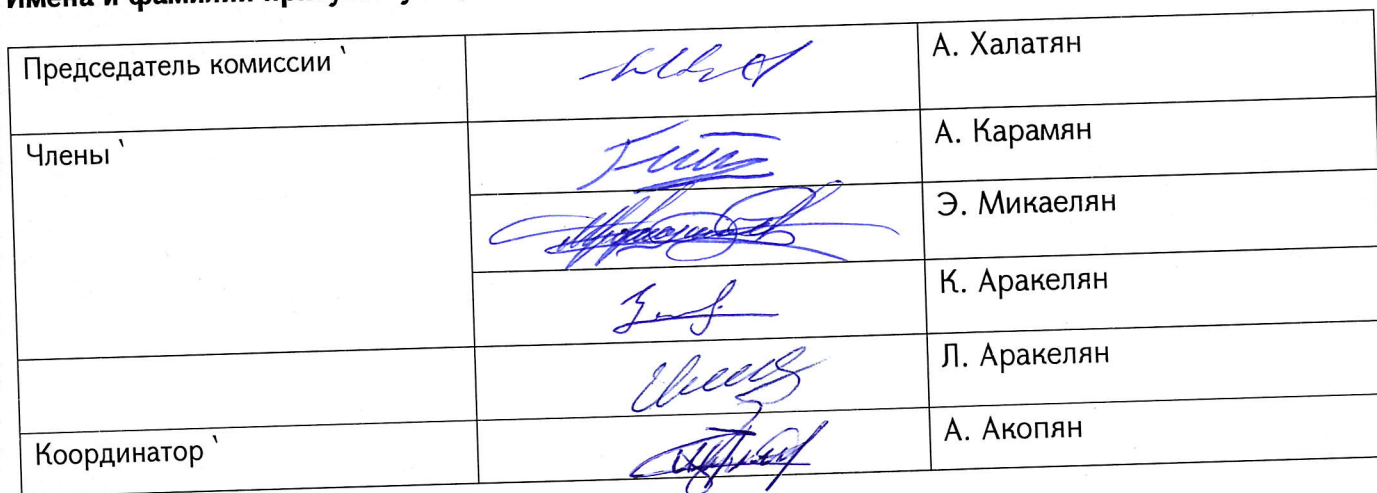 Имена и фамилии
Председатель комиссии ՝ А. Халатян
Члены ՝ А. Карамян
Э. Микаелян
К. Аракелян
Л. Аракелян
Координатор ՝ А. Акопян